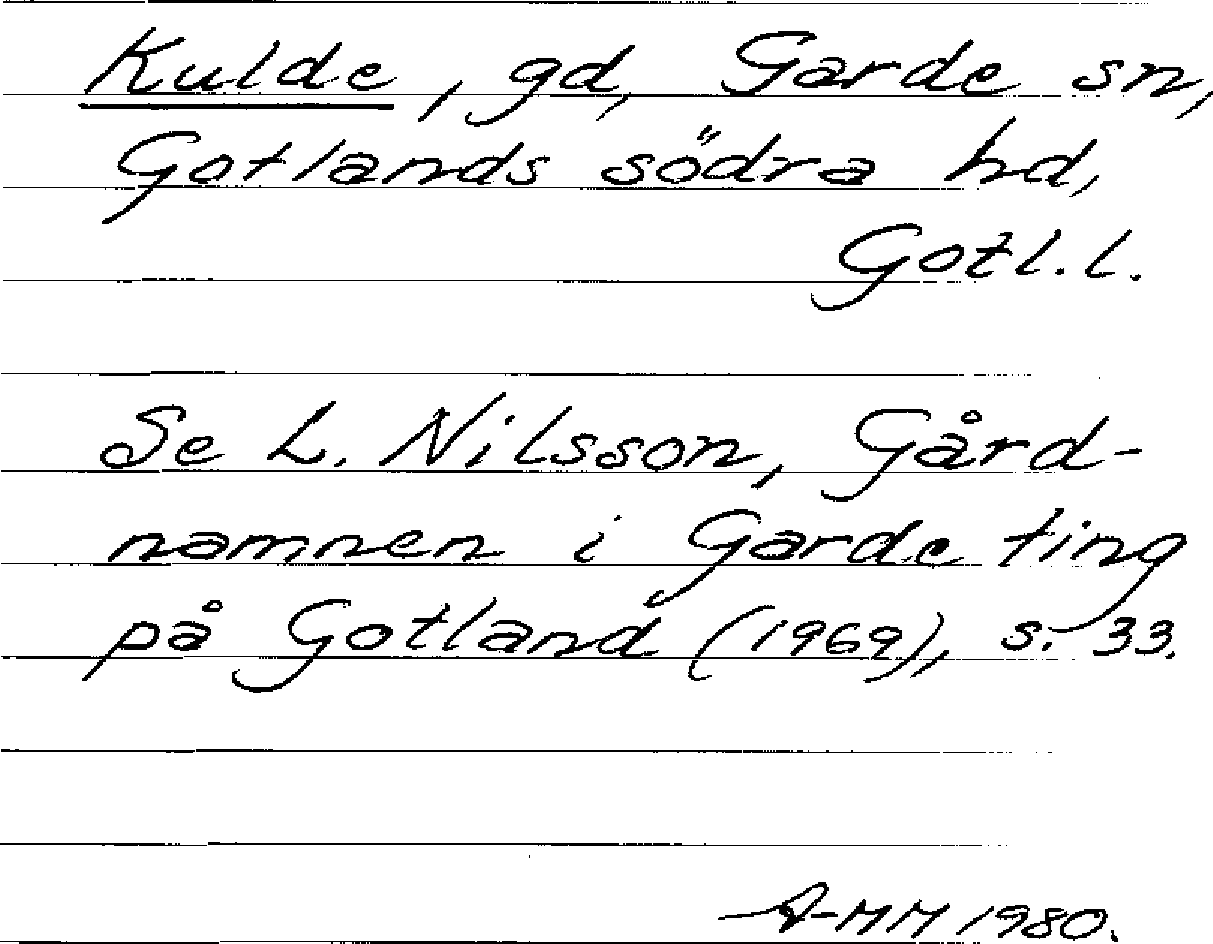 Kulde, gd, Garde sn,
Gotlands södra hd,
Gotl.l.
Se L. Nilsson, Gård-
namnen i Garde ting
på Gotland (1969), s. 33.
A-MM 1980.